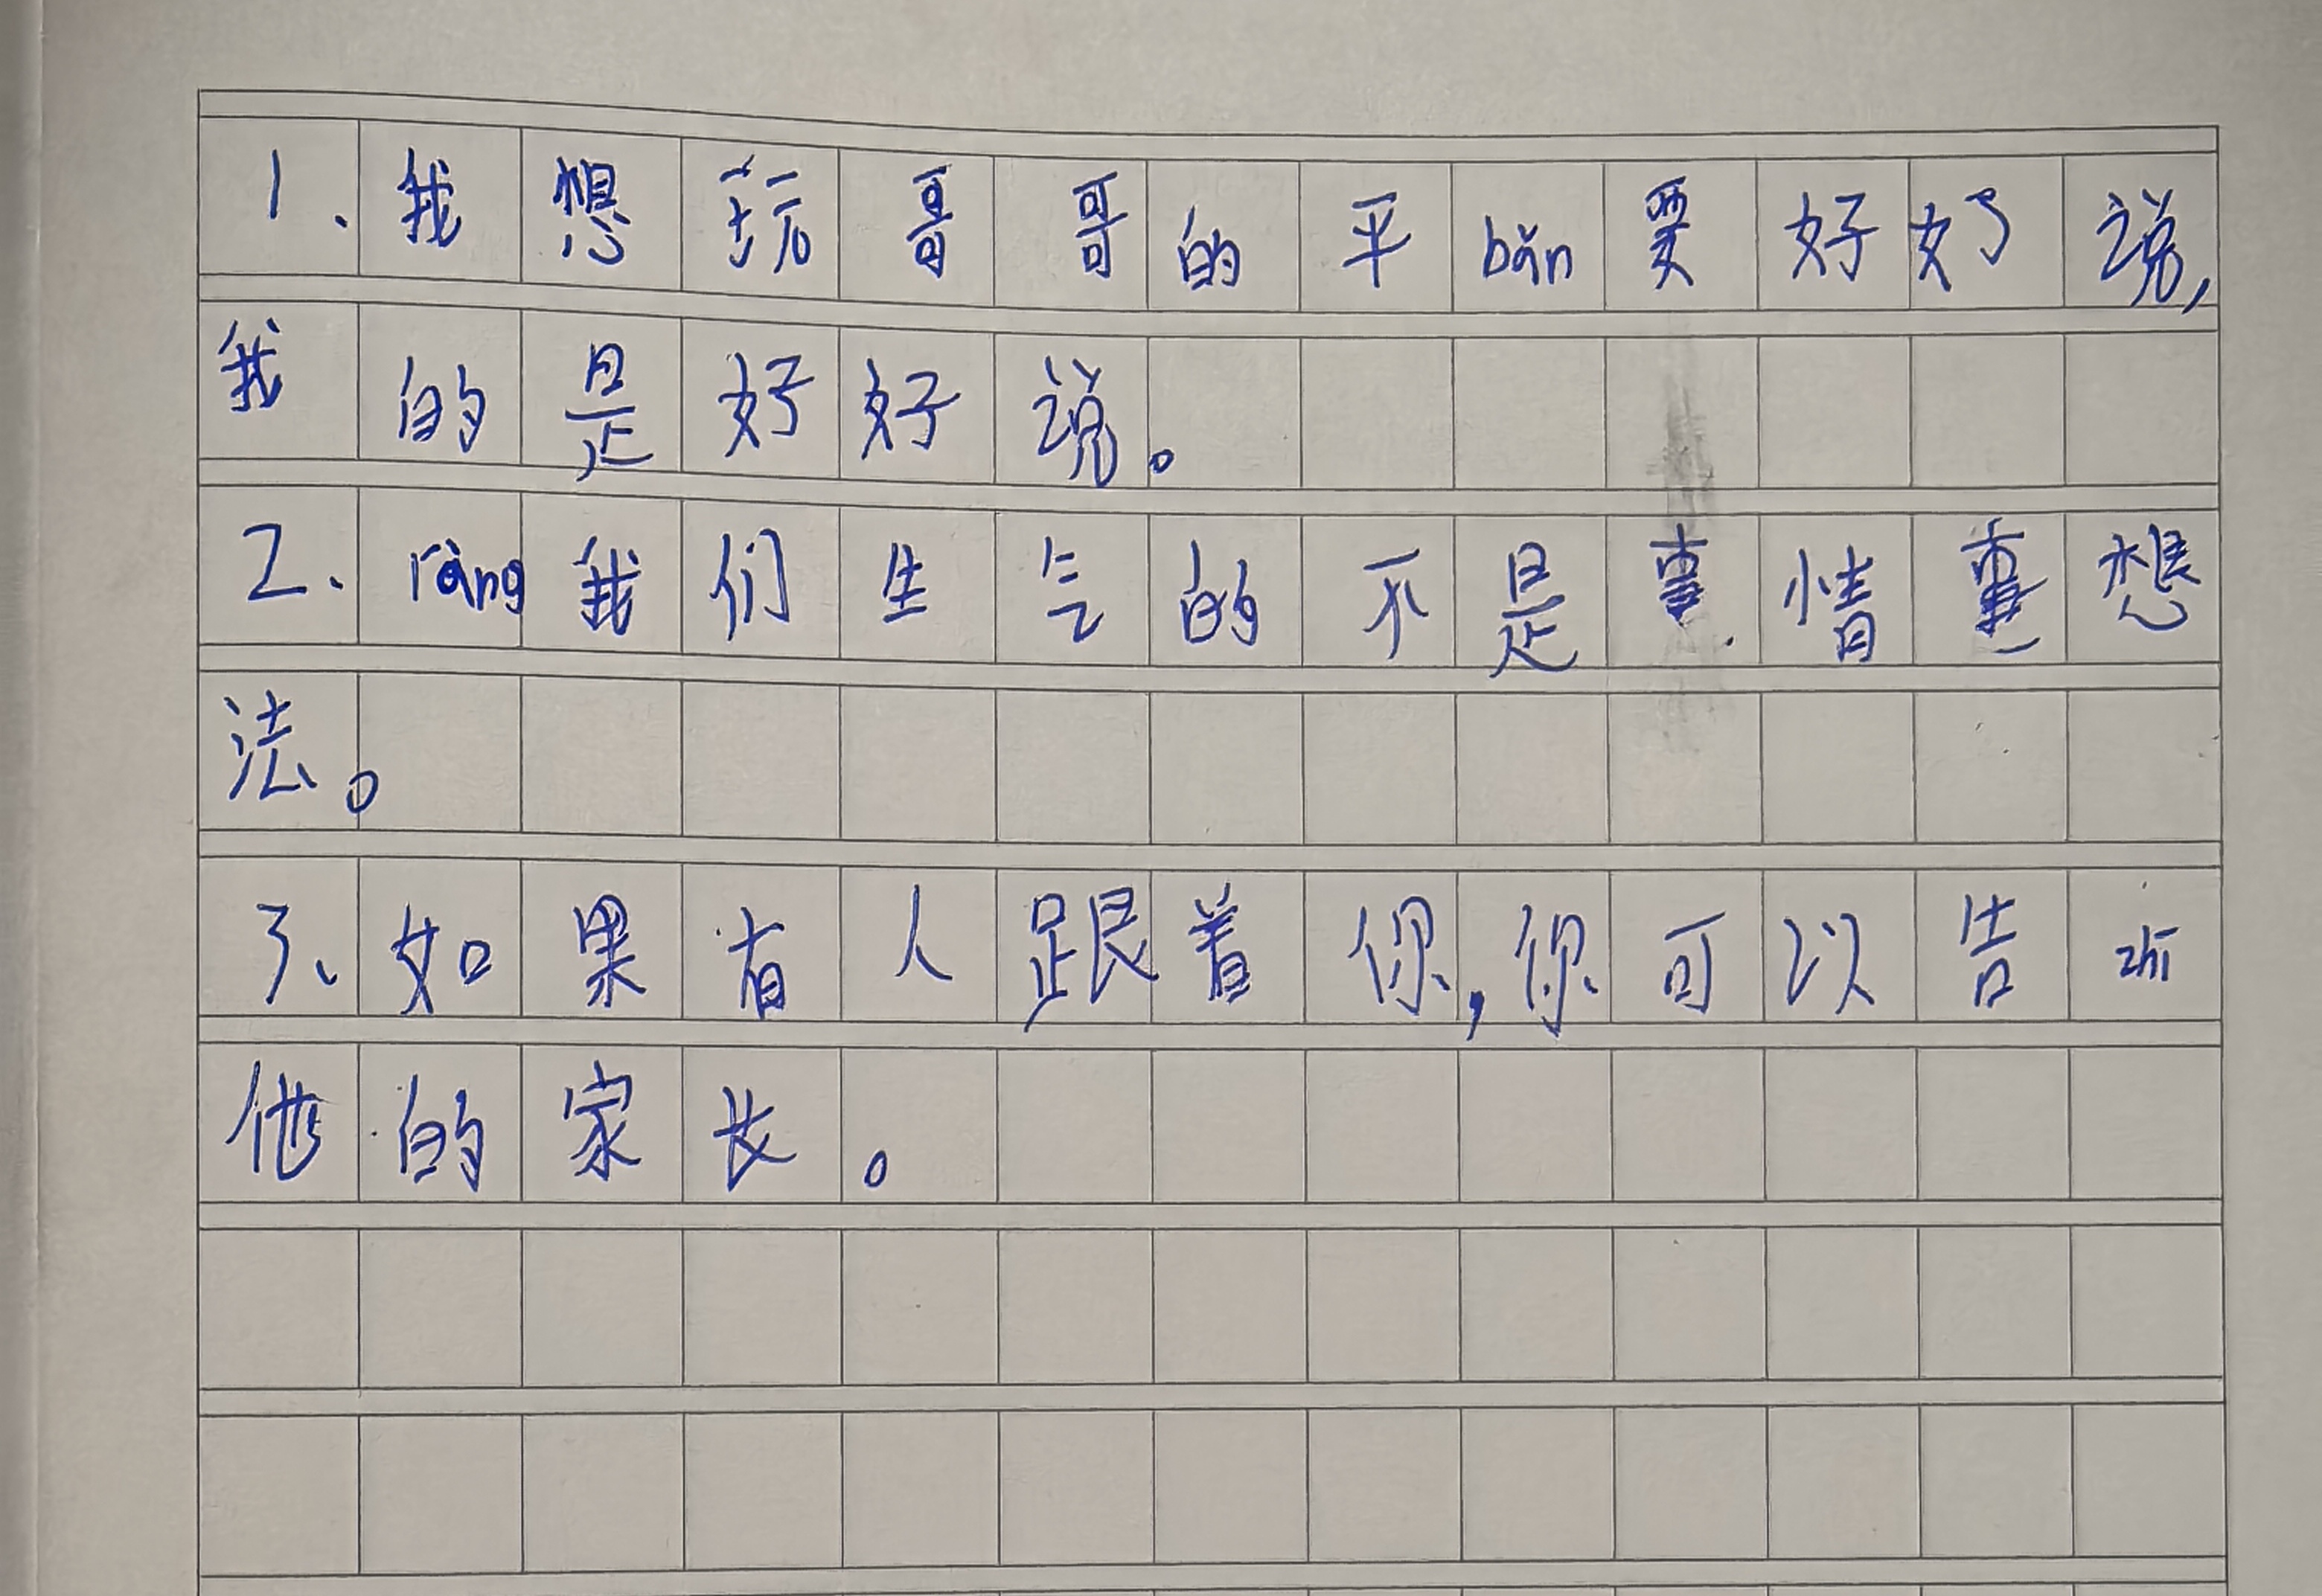 1、我想玩哥哥的平bǎn要好好说,
我的是好好说。
2、ràng我们生气的不是事情事想
法。
3、如果有人跟着你,你可以告诉
他的家长。